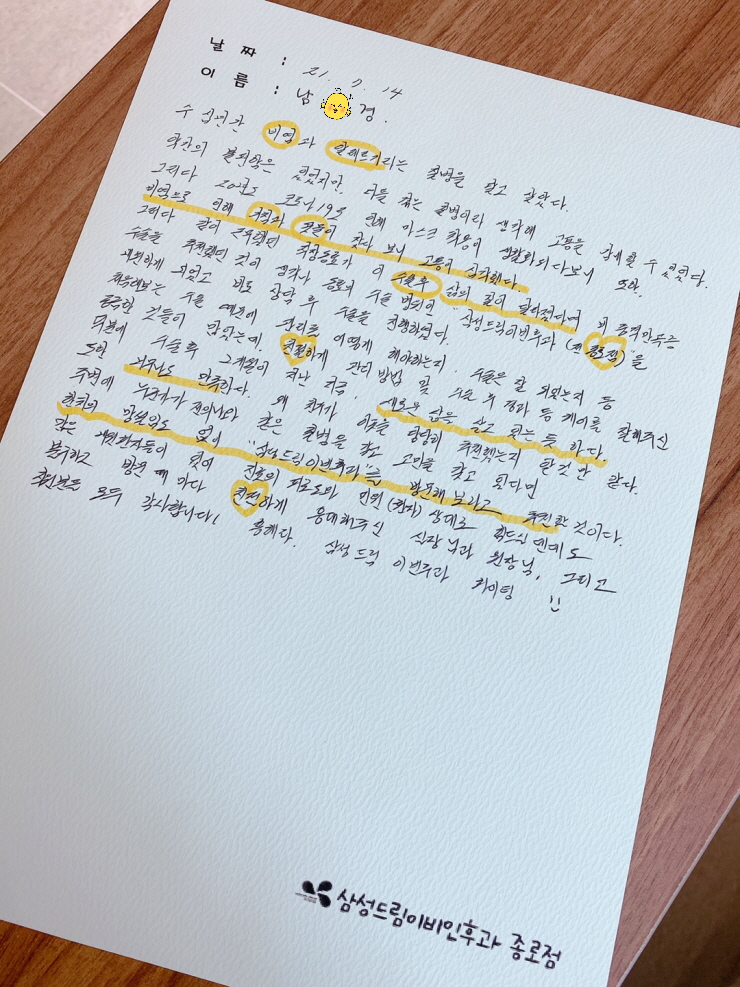 날 짜 : 21. 7. 14
이 름 : 남 경.
수 십년간 비염과 알레르기라는 질병을 앓고 살았다.
약간의 불편함은 있었지만, 다들 겪는 질병이라 생각해 고통을 감내할 수 있었다.
그러다 2020년도 코로나19로 인해 마스크 착용이 생활화되다보니 또한,
비염으로 인해 콧물이 잦다 보니 고통이 심각했다.
그러다 같이 근무했던 직장동료가 이 수술후 삶의 질이 달라졌다며
수술을 추천했던 것이 생각나 종로의 수술 병원인 "삼성드림이비인후과 (진 종로점)"을
내원하게 되었고 바로 상담 후 수술을 진행하였다.
처음해보는 수술 때문에 관리를 어떻게 해야하는지, 수술은 잘 되었는지 등
궁금한 것들이 많았는데, 친절하게 관리 방법 및 수술 후 경과 등 케어를 잘해주신
덕분에 수술 후 그개월이 지난 지금, 새로운 삶을 살고 있는 듯 하다.
또한 만족한다. 왜 직장 이곳을 당당히 추천했는지 할것 만 같다.
주변에 누군가가 저의나와 같은 질병을 갖고 고민을 갖고 있다면
한치의 망설임도 없이 "삼성드림이비인후과"를 방문해 보라고 추천할 것이다.
많은 내원환자들이 있어 진료의 피로도와 인원(환자) 상대로 힘드실 텐데도
불구하고 방문 때 마다 친절하게 응대해주신 실장님과 원장님, 그리고
직원분들 모두 감사합니다!
흥해라. 삼성드림 이비인후과 화이팅 !!
삼성드림이비인후과 종로점